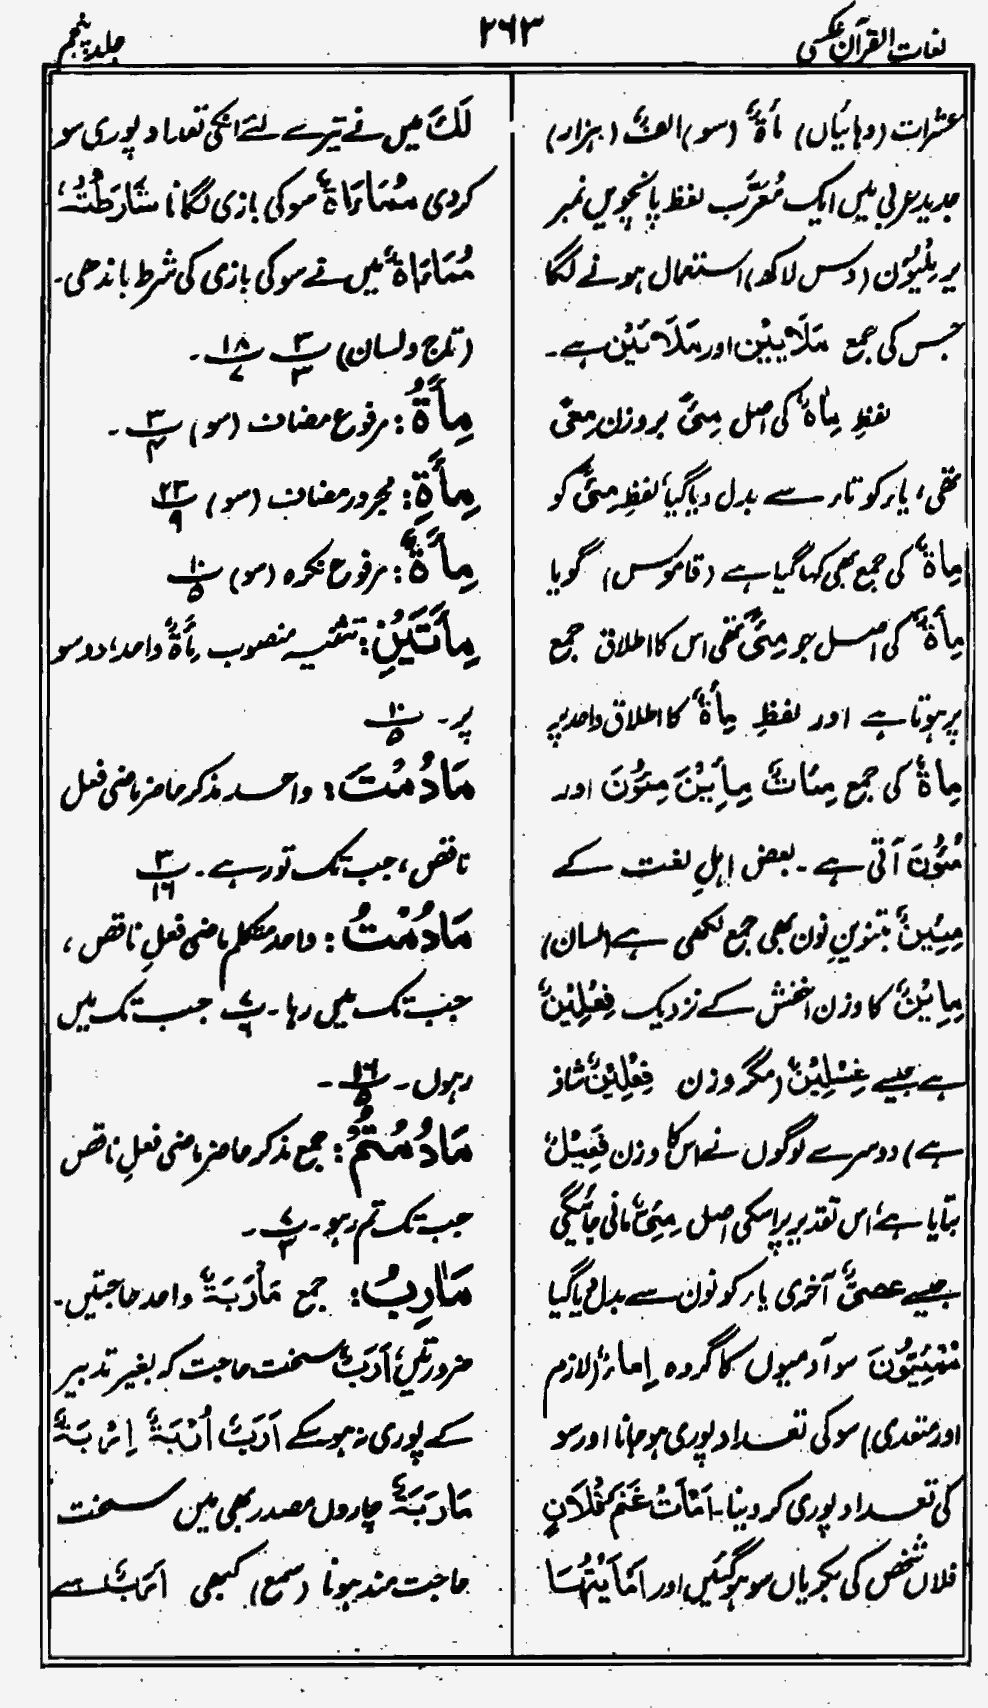 لغات القرآن عکسی
۲۶۳
جلد پنجم
عشرات (دہائیاں) مأۃٌ (سو) الفٌ (ہزار)
جدید عربی میں ایک مُعَرَّب لفظ پانچویں نمبر
پر مِلْیُوْن (دس لاکھ) استعمال ہونے لگا
جس کی جمع مَلَایِیْن اور مَلَائِیْن ہے۔
لفظِ مِاۃٌ کی اصل مِئیٌ بروزن مِعًی
تھی، یار کو تار سے بدل دیا گیا لفظِ مِئیٌ کو
مِاۃٌ کی جمع بھی کہا گیا ہے (قاموس) گویا
مِأۃٌ کی اصل جو مِئیٌ تھی اس کا اطلاق جمع
پر ہوتا ہے اور لفظِ مِأۃٌ کا اطلاق واحد پر
مِاۃٌ کی جمع مِئَاتٌ مِأِیْنَ مِئُوْنَ اور
مُئُوْنَ آتی ہے۔ بعض اہلِ لغت کے
مِئِیْنٌ بتنوینِ نون بھی جمع لکھی ہے (لسان)
مِایْنٌ کا وزن اخفش کے نزدیک فِعْلِیْنٌ
ہے جیسے غِسْلِیْنٌ (مگر وزن فِعْلِیْنٌ شاذ
ہے) دوسرے لوگوں نے اس کا وزن فَعِیْلٌ
بتایا ہے، اس تقدیر پر اسکی اصل مِئِیٌ مانی جائیگی
جیسے عصیٌّ آخری یار کو نون سے بدل دیا گیا
سو آدمیوں کا گروہ اِماءٌ (لازم
اور متعدی) سو کی تعداد پوری ہو جانا اور سو
کی تعداد پوری کر دینا۔ اَمْأَتْ غَنَمُ فُلَانٍ
فلاں شخص کی بکریاں سو ہو گئیں اور اَمْأَیْتُهَا
لَكَ میں نے تیرے لئے انکی تعداد پوری سو
کردی مُمَاءَاۃٌ سو کی بازی لگانا شَارَطْتُہٗ
مُمَاءَاۃً میں نے سو کی بازی کی شرط باندھی۔
(تاج ولسان) ۳/۳ ۱۸/۷ ۔
مِأَۃُ: مرفوع مضاف (سو) ۳/۴ ۔
مِأَۃِ: مجرور مضاف (سو) ۲۳/۹
مِأَۃٌ: مرفوع نکرہ (سو) ۱۰/۵
مِأَتَیْنِ: تثنیہ منصوب مِأَۃٌ واحد، دو سو
پر۔ ۱۰/۵
مَادُمْتَ: واحد مذکر حاضر ماضی فعل
ناقص، جب تک تو رہے۔ ۳/۱۶
مَادُمْتُ: واحد متکلم ماضی فعلِ ناقص،
جب تک میں رہا۔ ۷/۶ جب تک میں
رہوں۔ ۱۶/۵ ۔
مَادُمْتُمْ: جمع مذکر حاضر ماضی فعلِ ناقص
جب تک تم رہو۔ ۷/۳ ۔
مَاٰرِبُ: جمع مَأْرَبَۃٌ واحد حاجتیں۔
ضرورتیں، اَرَبٌ سخت حاجت کہ بغیر تدبیر
کے پوری نہ ہوسکے اَرَبٌ اُرْبَۃٌ اِرْبَۃٌ
مَأرَبَۃٌ چاروں مصدر بھی ہیں سخت
حاجت مند ہونا (سَمِعَ) کبھی اَرَبٌ سے